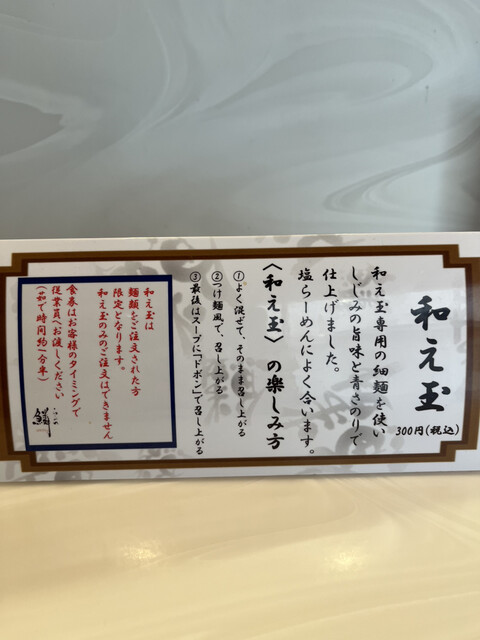 和え玉
300円(税込)
和え玉専用の細麺を使い
しじみの旨味と青さのりで
仕上げました。
塩らーめんによく合います。
〈和え玉〉の楽しみ方
①よく混ぜて、そのまま召し上がる
②つけ麺風で、召し上がる
③最後はスープに「ドボン」で召し上がる
和え玉は
麺類をご注文された方
限定となります。
和え玉のみのご注文はできません
食券はお客様のタイミングで
従業員へお渡しください
(茹で時間約一分半)